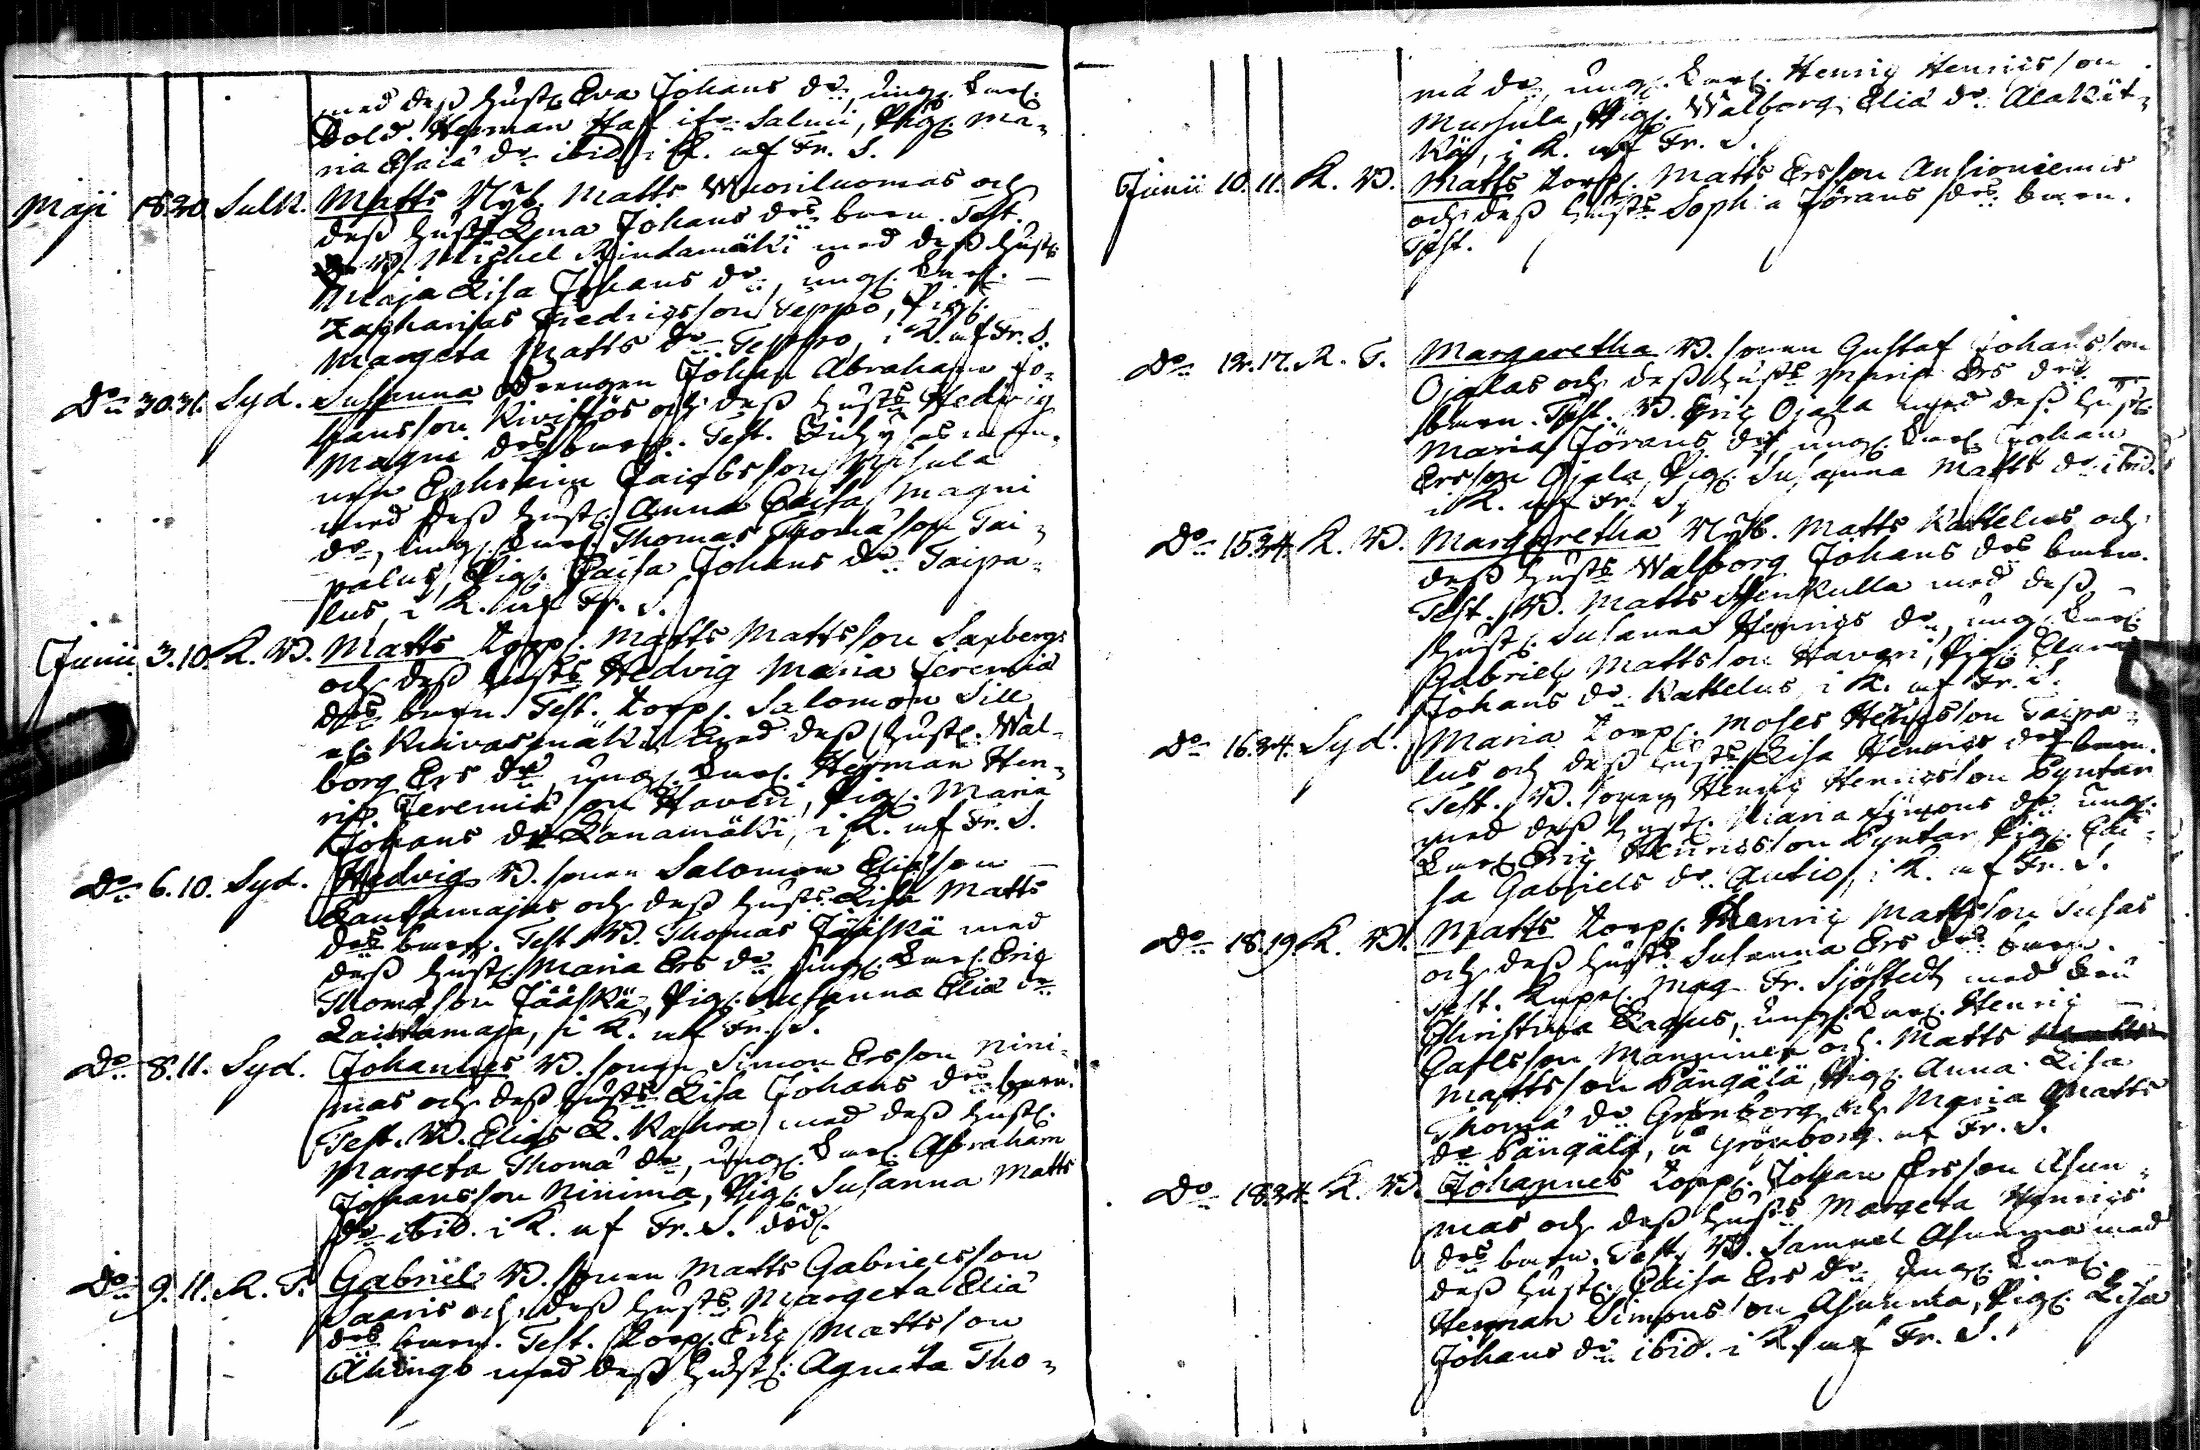 med deß hustr. Eva Johans dr, ungk. Enel.
Sold. Herman Haf ifr. Salmi, Pig. Ma-
ria Esaiæ dr ibid. i K. af Fr. S.
Maji 18.20. Sulk. Matts Nyb. Matts Wuoriluomas och
deß hustrs Lena Johans drs barn. Test.
B. Michel Rindamäki med deß hustr.
Maja Lisa Johans dr, ungk. Enl.
Zacharias Fredricsson Seppo, Pig.
Margeta Matts dr Seppo, i K. af Fr. S.
Do 30.31. Syd. Susanna Drengen Johan Abraham Jo-
hansson Kivistös och deß hustrs Hedvig
Magni drs barn. Test.
Ephraim Jacobsson
med deß hustr. Anna Caisa Magni
dr, ungk. Enl. Thomas Thomæson Tai-
palus, Pig. Caisa Johans dr Taipa-
lus, i K. af Fr. S.
Junii 3.10. K. B. Matts Torp. Matts Mattsson Saxbergs
och deß hustrs Hedvig Maria Jeremiæ
drs barn. Test. Torp. Salomon Sill
med deß hustr. Wal-
borg Ers dr, ungk. Enl. Herman Hen-
ric Jeremiæson Haveri, Pig. Maria
Johans dr Lanamäki, i K. af Fr. S.
Do 6.10. Syd. Hedvig B. sonen Salomon Eliæson
Lautamajas och deß hustrs Lisa Matts
drs barn. Test. B. Thomas Jääskä med
deß hustr. Maria Ers dr, ungk. Enl. Eric
Thomæson Jääskä, Pig. Susanna Eliæ dr
Lautamaja, i K. af Fr. S.
Do 8.11. Syd. Johannes B. sonen Simon Ersson Nini-
mas och deß hustrs Lisa Johans drs barn.
Test. B. Elias L. Kahra med deß hustr.
Margeta Thomæ dr, ungk. Enl. Abraham
Johansson Ninima, Pig. Susanna Matts
dr ibid. i K. af Fr. S. död.
Do 9.11. K. T. Gabriel B. sonen Matts Gabrielsson
Saaris och deß hustrs Margeta Eliæ
drs barn. Test. Torp. Eric Mattsson
Åkinge med deß hustr. Agneta Tho-
mæ dr, ungk. Enl. Henric Henricsson
Mursula, Pig. Walborg Eliæ dr Alakät-
kä, i K. af Fr. S.
Junii 10.11. K. B. Matts Torp. Matts Ersson Ansioniemis
och deß hustrs Sophia Jörans drs barn.
Test.
Do 12.17. K. T. Margaretha B. sonen Gustaf Johansson
Ojalas och deß hustrs Maria Ers drs
barn. Test. B. Eric Ojala med deß hustr.
Maria Jörans dr, ungk. Enl. Johan
Ersson Ojala, Pig. Susanna Matts dr ibid.
i K. af Fr. S.
Do 15.24. K. B. Margaretha Nyb. Matts Kattelus och
deß hustrs Walborg Johans drs barn.
Test. B. Matts Menkulla med deß
hustr. Susanna Henrics dr, ungk. Enl.
Gabriel Mattsson Haveri, Pig. Clara
Johans dr Kattelus i K. af Fr. S.
Do 16.24. Syd. Maria Torp. Moses Henricsson Taipa-
lus och deß hustrs Lisa Henrics drs barn.
Test. B. sonen Henric Henricsson Lyntar
med deß hustr. Maria Simons dr ungk.
Enl. Eric Henricsson Lyntar Pig. Cai-
sa Gabriels dr Antio, i K. af Fr. S.
Do 18.19. K. B. Matts Torp. Henric Mattsson Susas
och deß hustrs Susanna Ers drs barn.
Test. Kapel. Mag. Fr. Sjöstedt med Fru
Christina Ragus, ungk. Enl. Henric
Carlsson Manninen och Matts
Mattsson Pängälä, Pig. Anna Lisa
Thomæ dr Grönborg och Maria Matts
dr Pängälä, å Grönborg af Fr. S.
Do 18.24. K. B. Johannes Torp. Johan Ersson Asun-
mas och deß hustrs Margeta Henrics
drs barn. Test. B. Samuel Asunma med
deß hustr. Caisa Ers dr ungk. Enl.
Herman Simonsson Asunma, Pig. Lisa
Johans dr ibid. i K. af Fr. S.